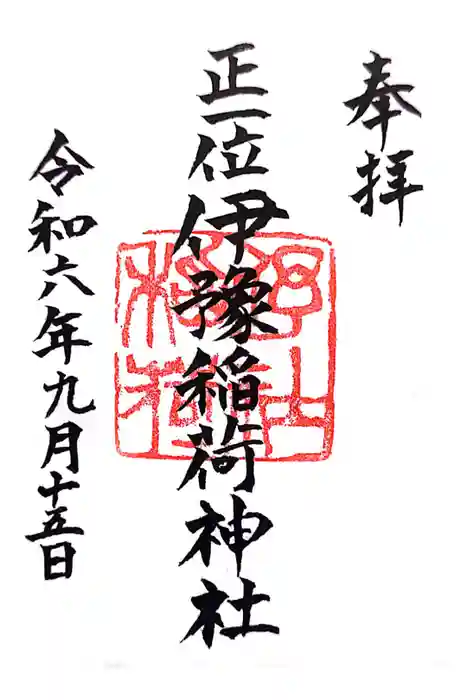 奉拝
正一位伊豫稲荷神社
令和六年九月十五日